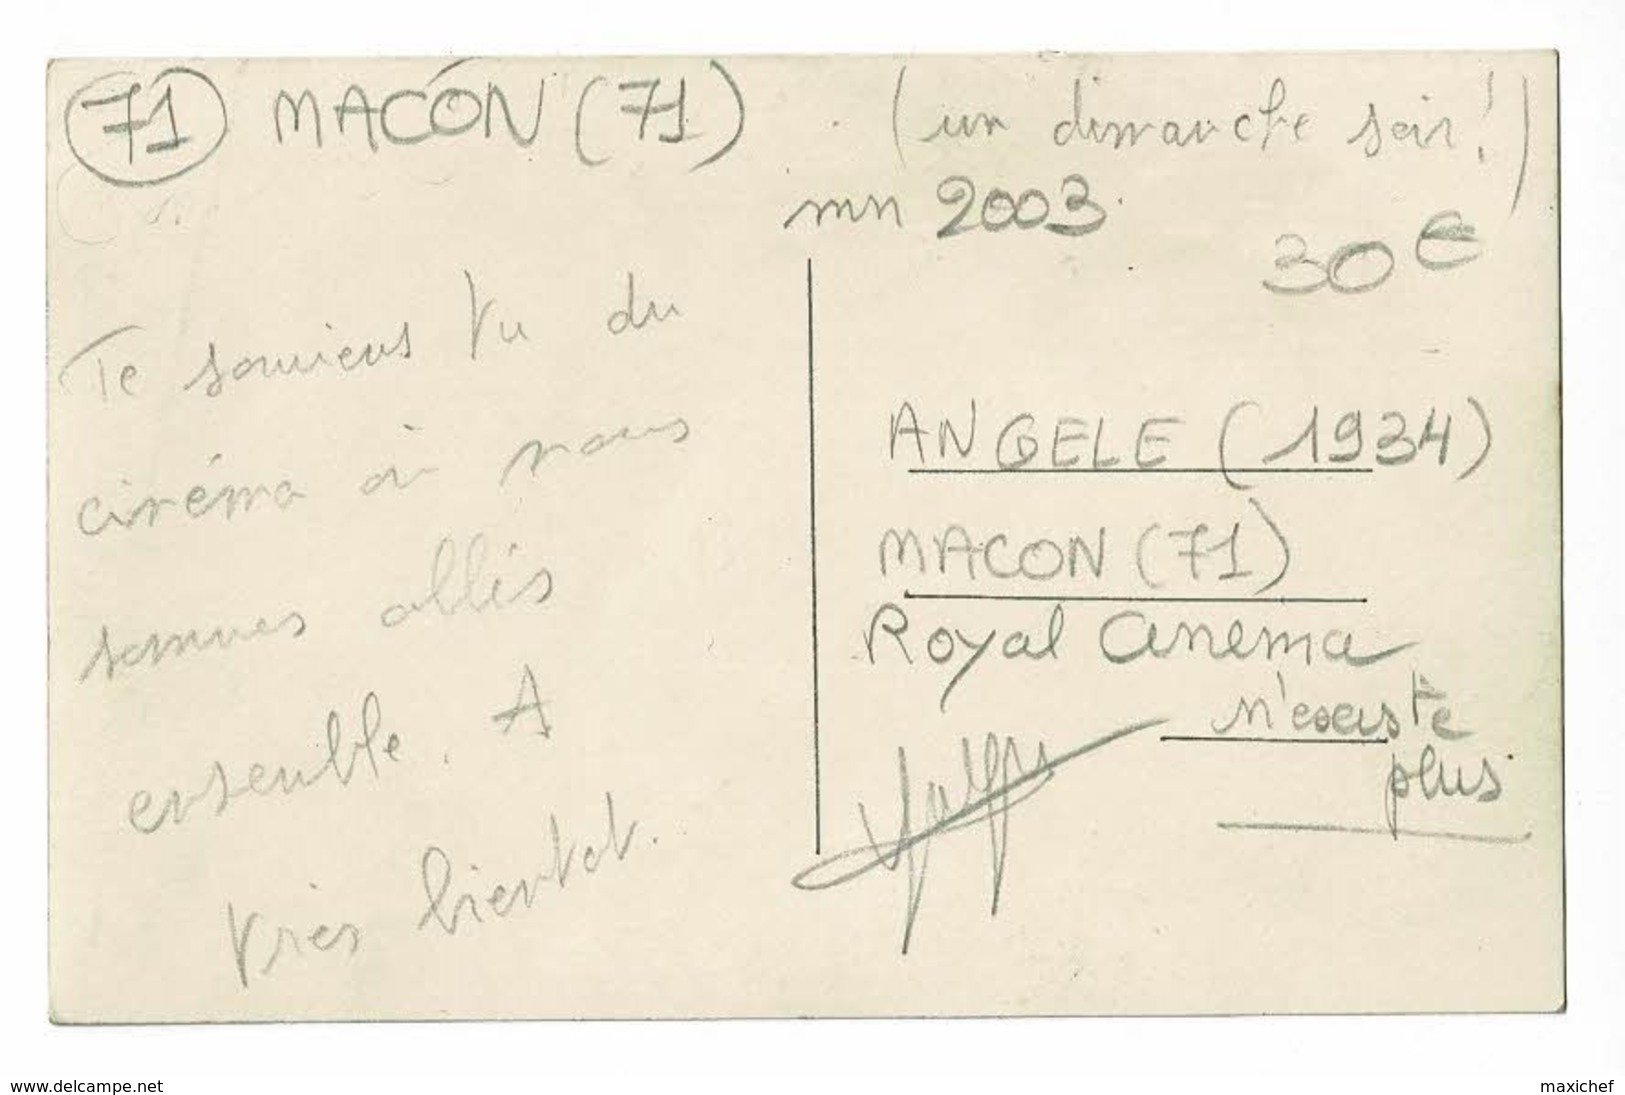 71 MACÔN (71)
(un dimanche soir!)
mn 2003
30€
Te souviens tu du
cinéma où nous
sommes allés
ensemble. A
très bientot.
ANGELE (1934)
MACON (71)
Royal Cinema
n'existe
plus
www.delcampe.net
maxichef